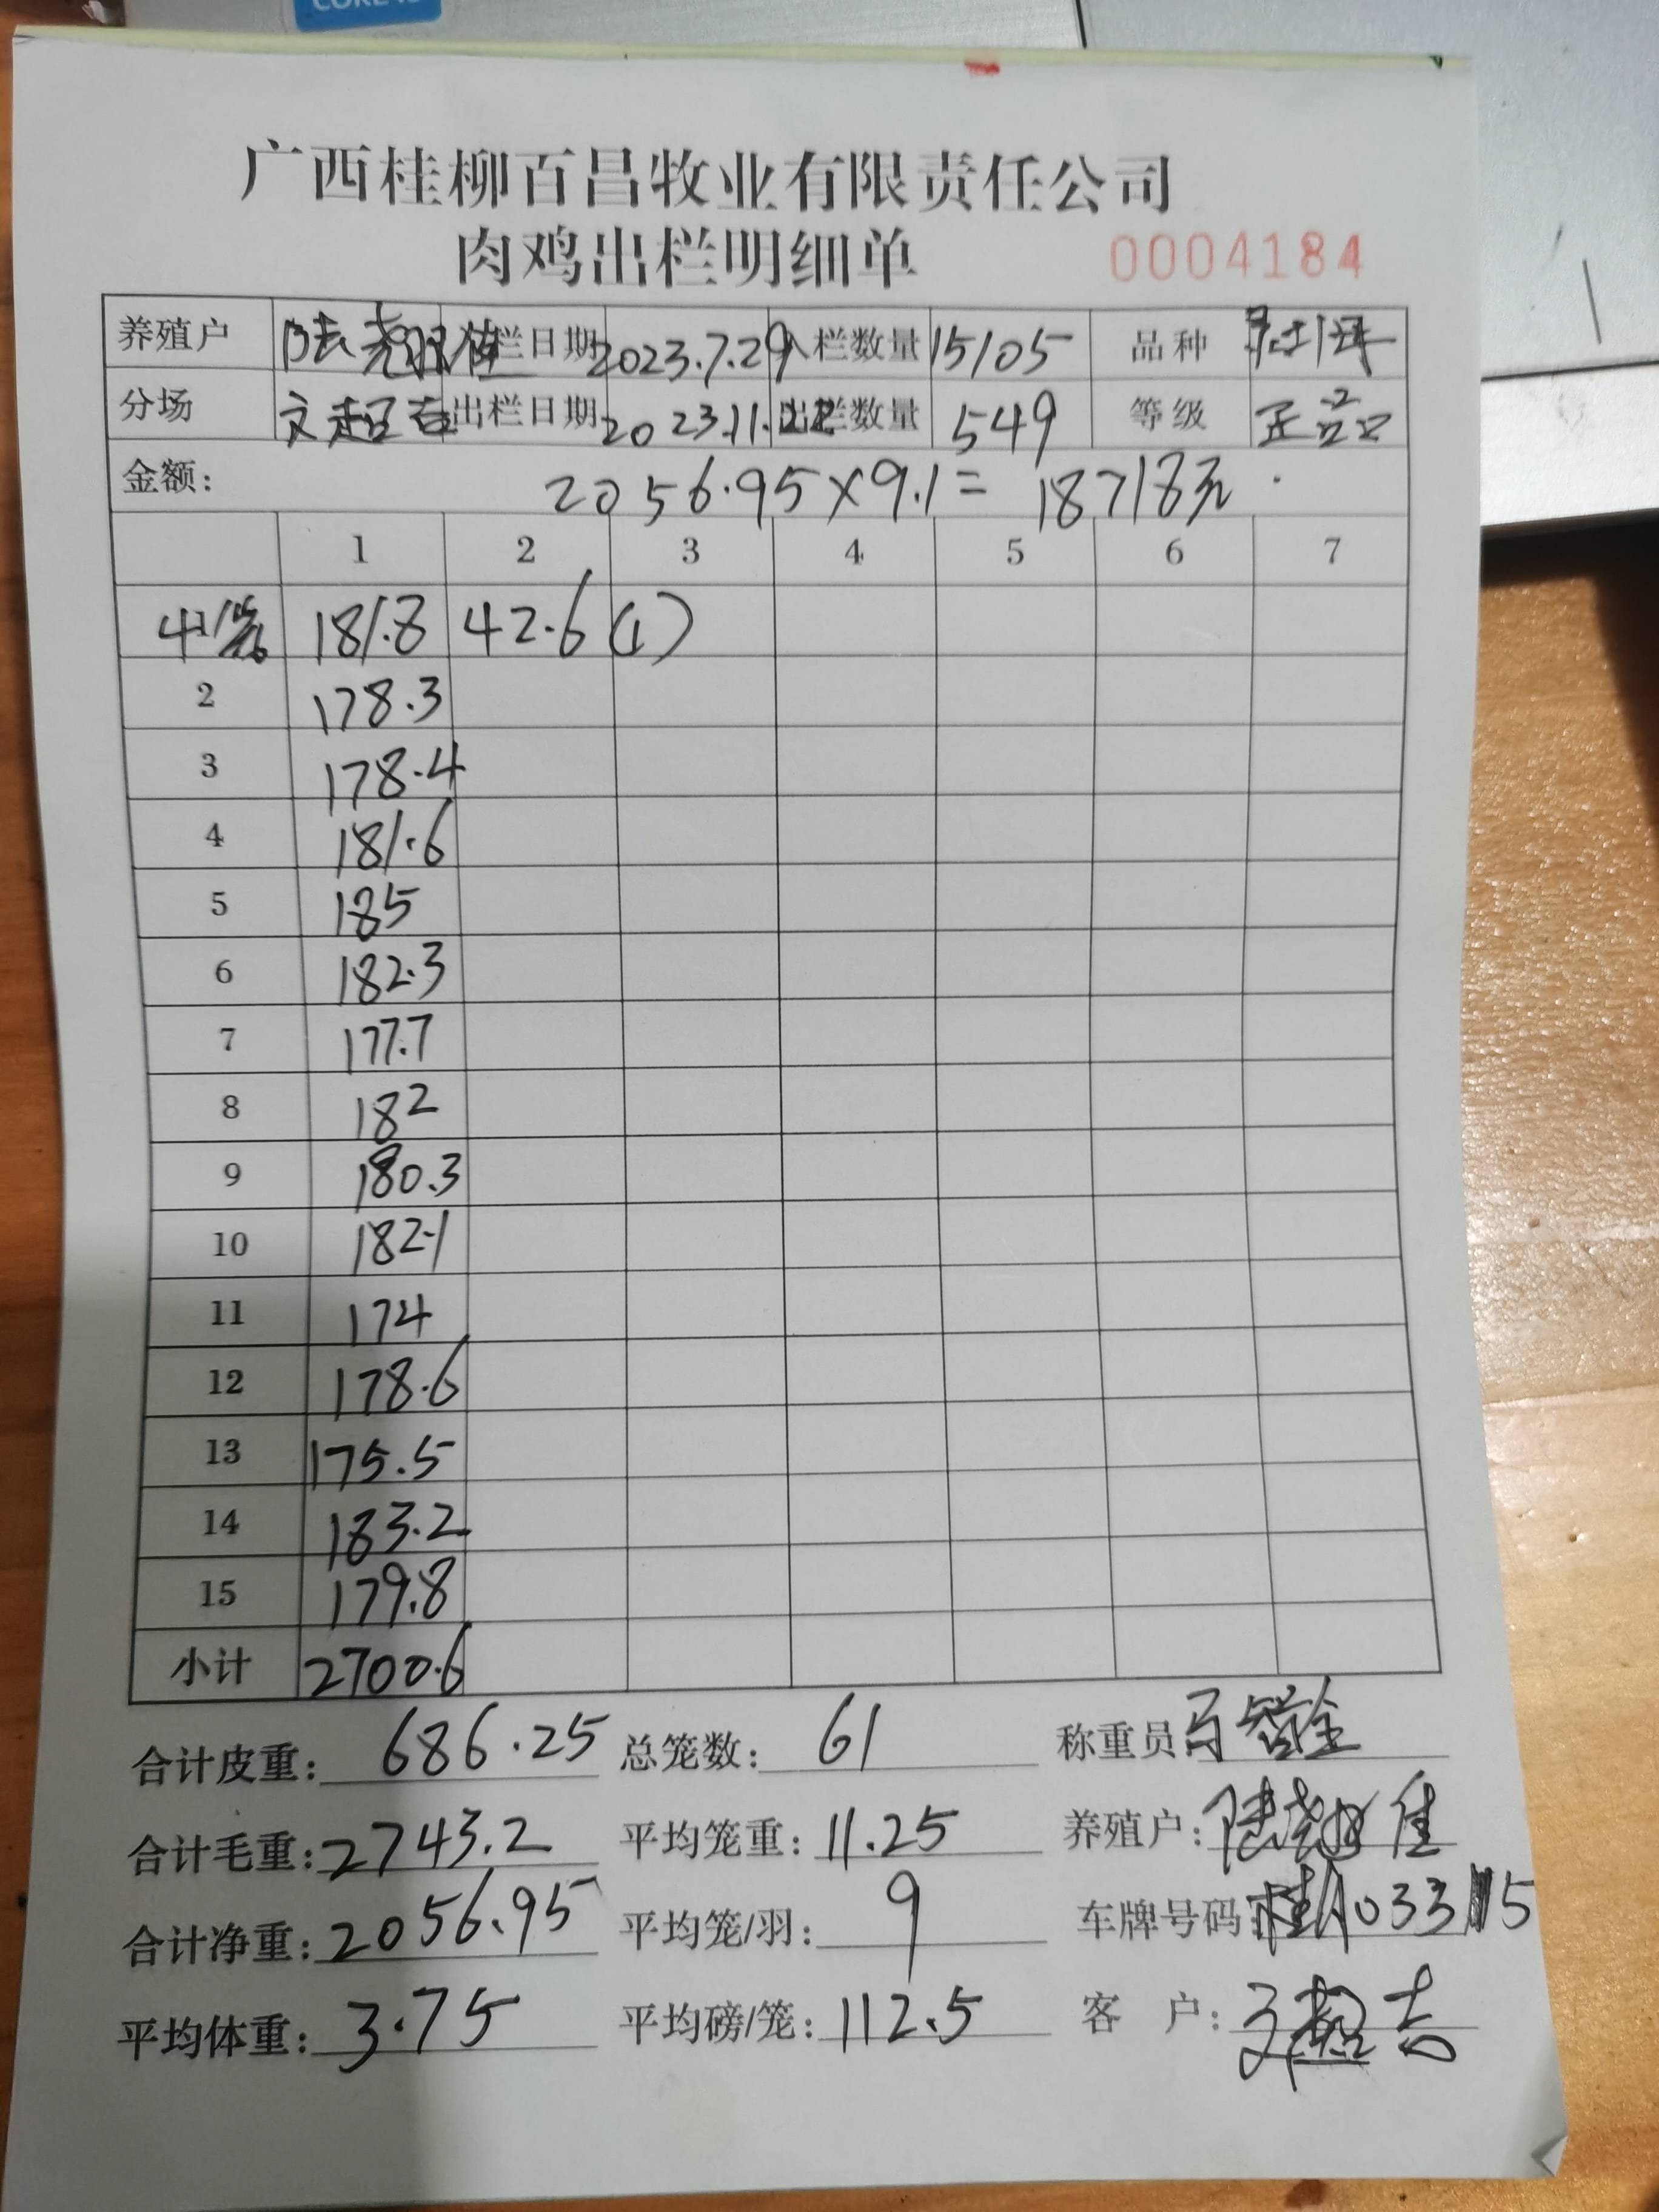 CORE i5
广西桂柳百昌牧业有限责任公司
肉鸡出栏明细单 0004184
养殖户 入栏日期 2023.7.29 入栏数量 15105 品种
分场 文超吉 出栏日期 2023.11.22 出栏数量 549 等级 正品
金额: 2056.95×9.1= 18718元.
1 2 3 4 5 6 7
4/笼 181.8 42.6 (1)
2 178.3
3 178.4
4 181.6
5 185
6 182.3
7 177.7
8 182
9 180.3
10 182.1
11 174
12 178.6
13 175.5
14 183.2
15 179.8
小计 2700.6
合计皮重: 686.25 总笼数: 61 称重员:
合计毛重: 2743.2 平均笼重: 11.25 养殖户:
合计净重: 2056.95 平均笼/羽: 9 车牌号码: 桂A03315
平均体重: 3.75 平均磅/笼: 112.5 客 户: 文超吉